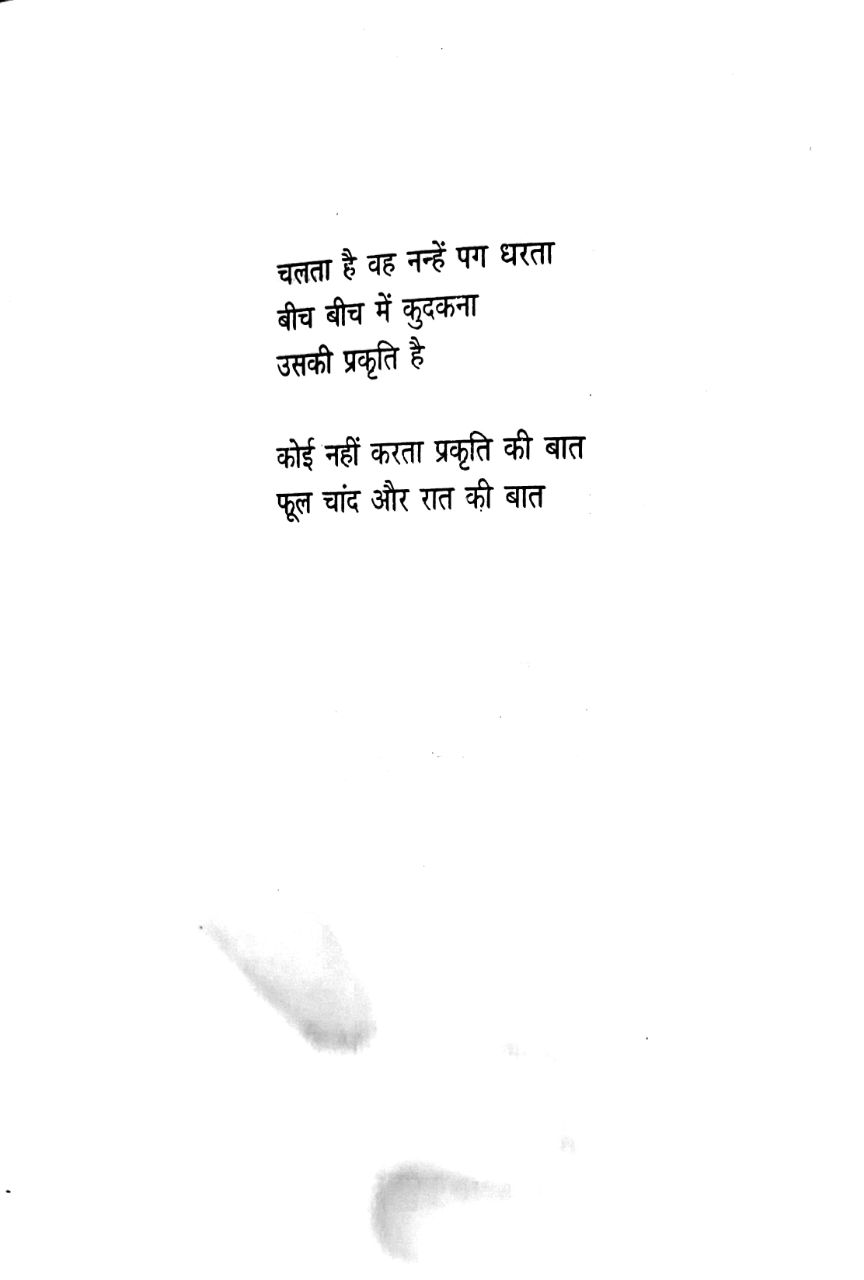 चलता है वह नन्हें पग धरता
बीच बीच में कुदकना
उसकी प्रकृति है
कोई नहीं करता प्रकृति की बात
फूल चांद और रात की बात